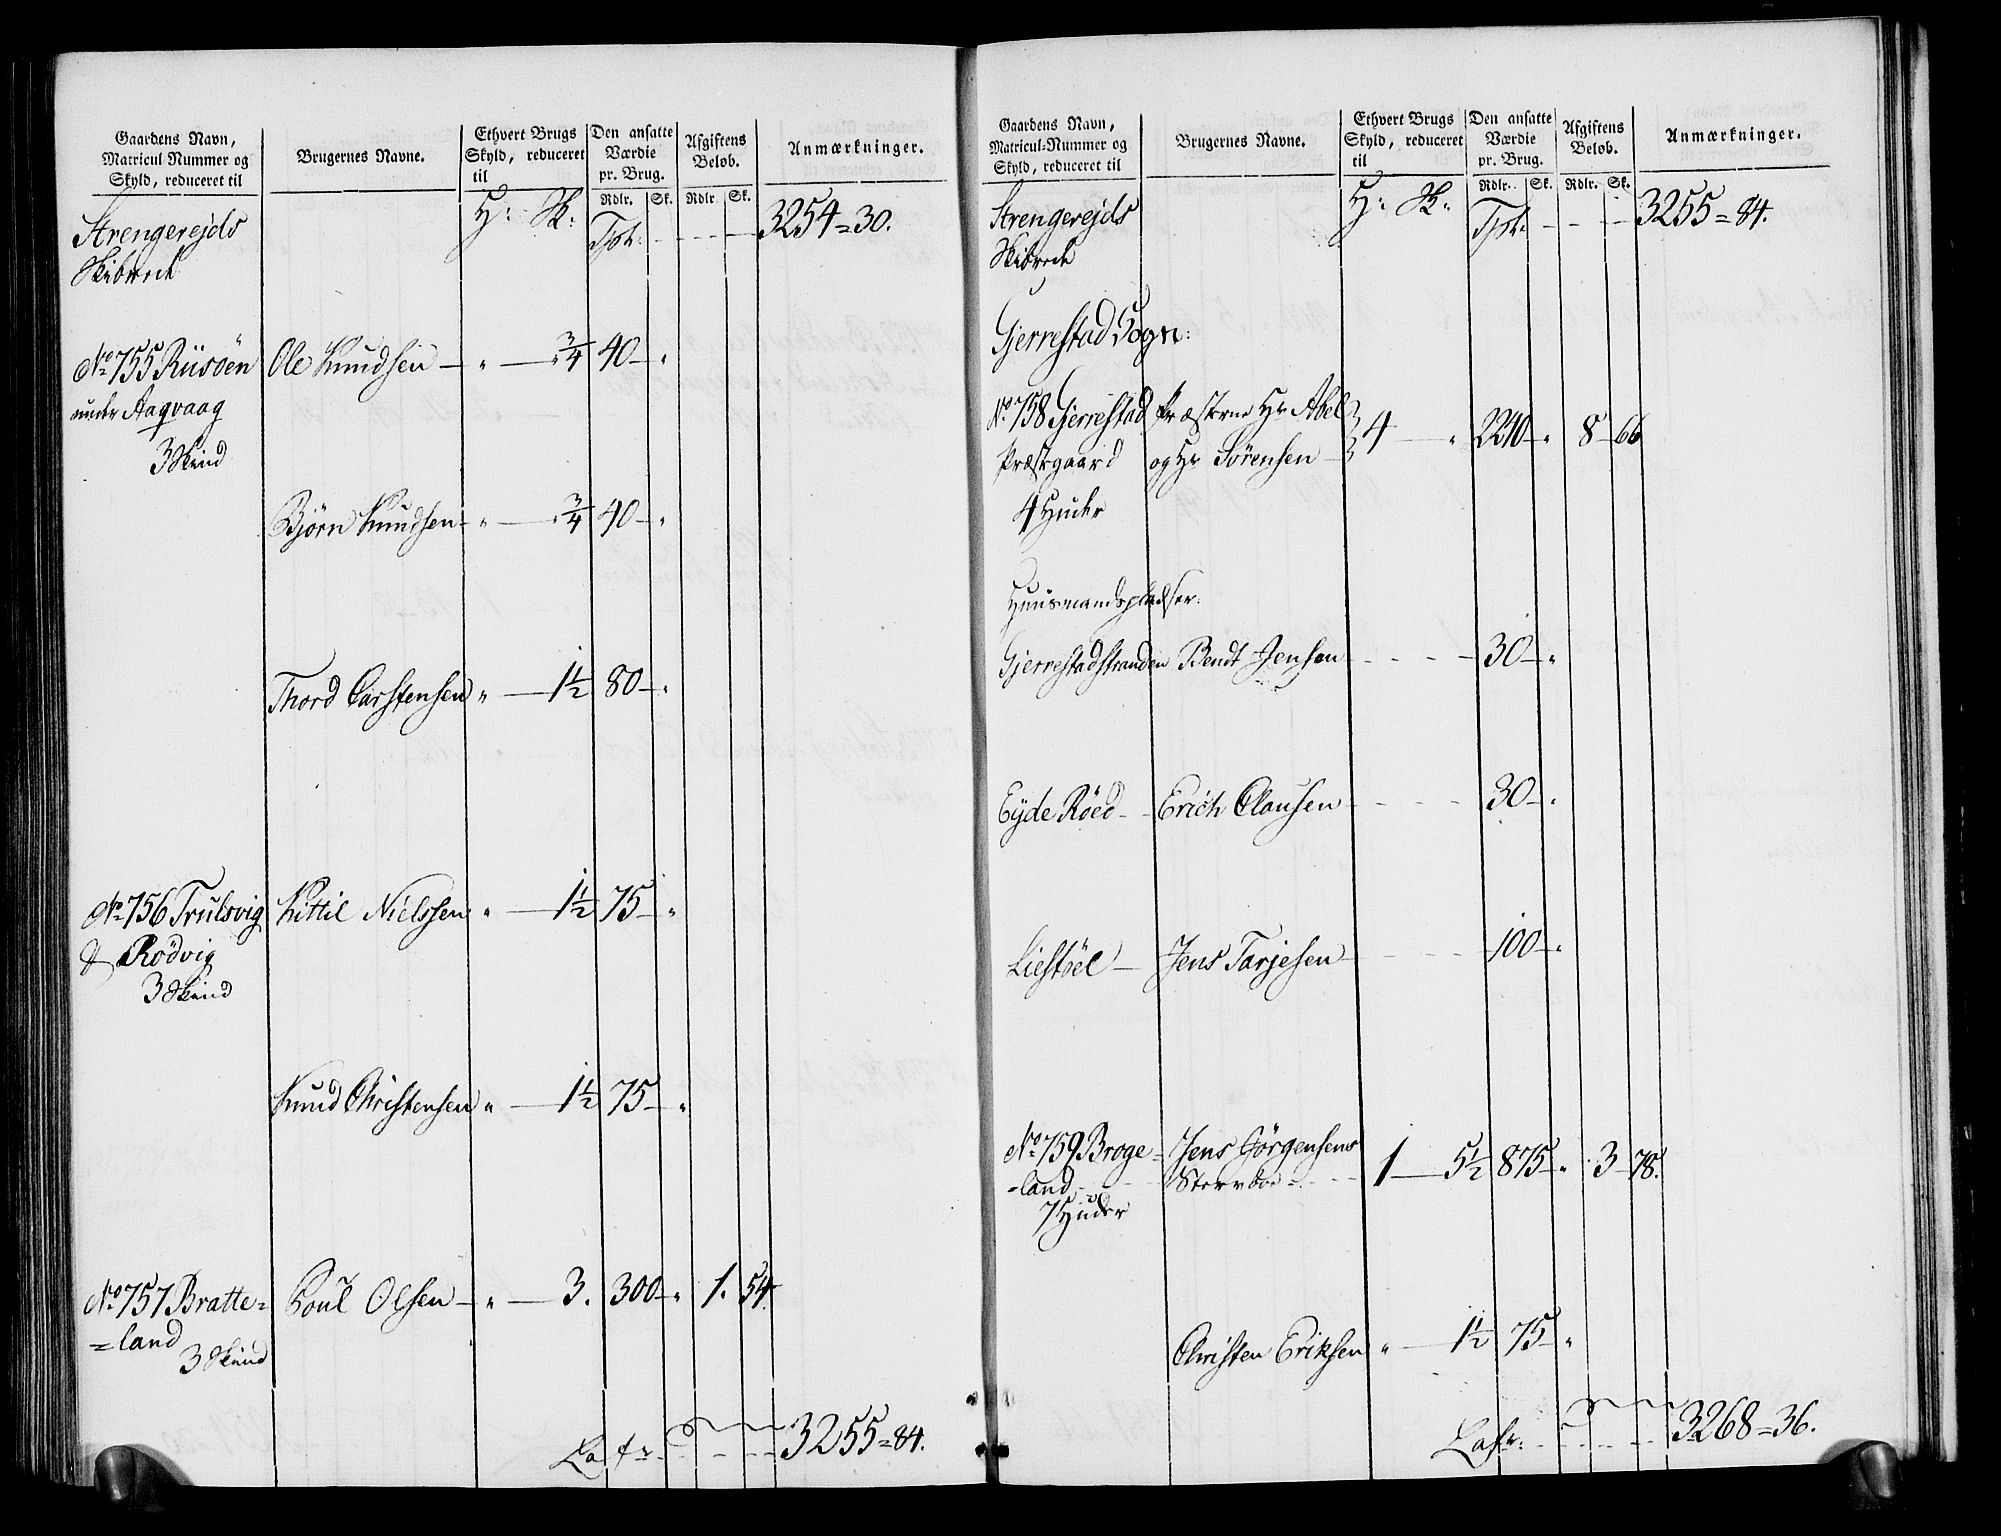 Gaardens Navn,
Matricul-Nummer og
Skyld, reduceret til
Brugernes Navne.
Ethvert Brugs
Skyld, reduceret
til
Den ansatte
Værdie
pr. Brug.
Rdlr. Sk.
Afgiftens
Beløb.
Rdlr. Sk.
Anmærkninger.
H: Sk:
Strengerejds
Skibrede
Tpt: 3254=30.
No 755 Riisöen Ole Knudsen — " — 3/4 40 — "
under Aagvaag
3 Skind
Björn Knudsen — " — 3/4 40 — "
Thord Carstensen " — 1 1/2 80 — "
No 756 Trulsvig Kittil Nielssen " — 1 1/2 75 — "
& Rödvig
3 Skind
Knud Christensen " — 1 1/2 75 — "
No 757 Bratte= Poul Olsen — " — 3. 300 — " 1. 54.
=land
3 Skind
Lafr: 3255=84.
Gaardens Navn,
Matricul-Nummer og
Skyld, reduceret til
Brugernes Navne.
Ethvert Brugs
Skyld, reduceret
til
Den ansatte
Værdie
pr. Brug.
Rdlr. Sk.
Afgiftens
Beløb.
Rdlr. Sk.
Anmærkninger.
H: Sk:
Strengerejds
Skibrede
Tpt: 3255=84.
Gjerrestad Sogn:
No 758 Gjerrestad Præsterne Hr Abel
Præstegaard og Hr Sörensen — 4 — " 2240 — " 8 — 66
4 Huder
Huusmandspladser:
Gjerrestadstranden Bendt Jensen 30 — "
Eyde Röed — Erich Clausen 30 — "
Liestöel — Jens Tarjesen 100 — "
No 759 Broge= Jens Görgensens
=land Stervboe 1 — 5 1/2 875 — " 3 — 78.
7 Huder
Christen Eriksen " — 1 1/2 75 — "
Lafr: 3268=36.